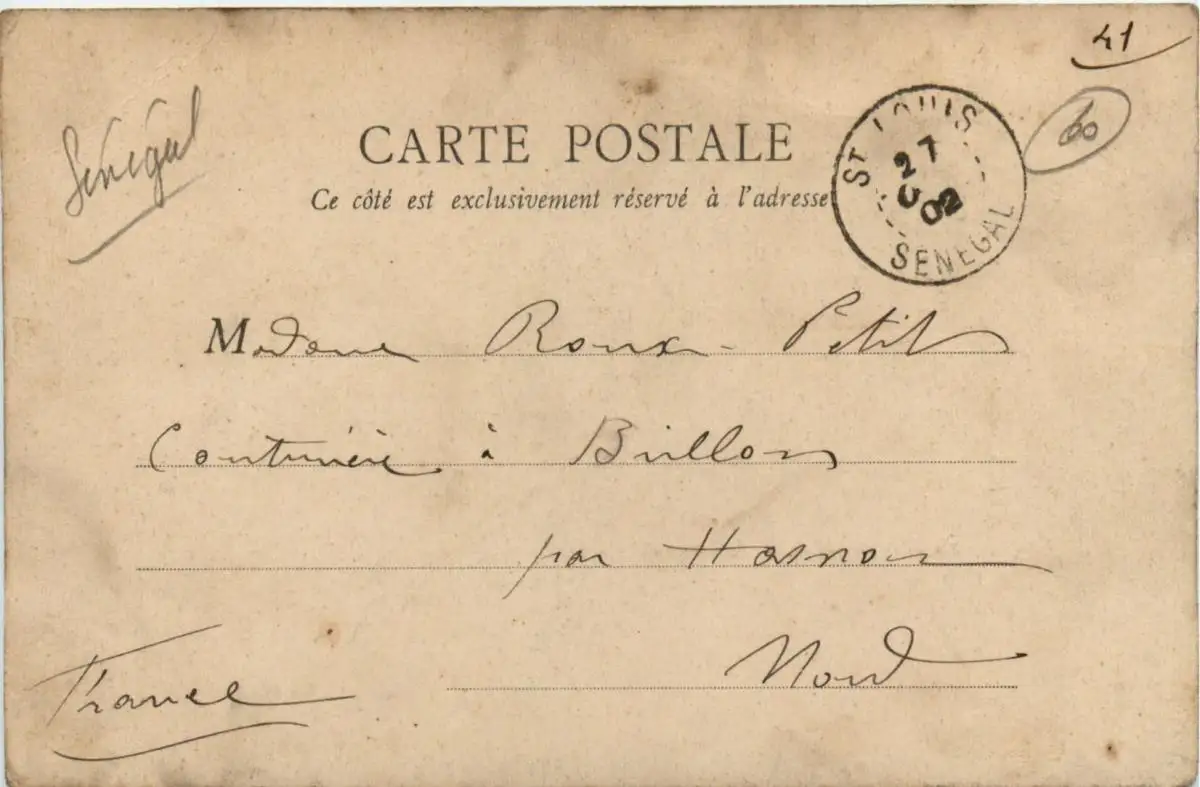 41
Sénégal
60
CARTE POSTALE
Ce côté est exclusivement réservé à l'adresse
ST LOUIS
27
02
SENEGAL
Madame Roux-Petit
Couturière à Brillon
par Hasnon
Nord
France